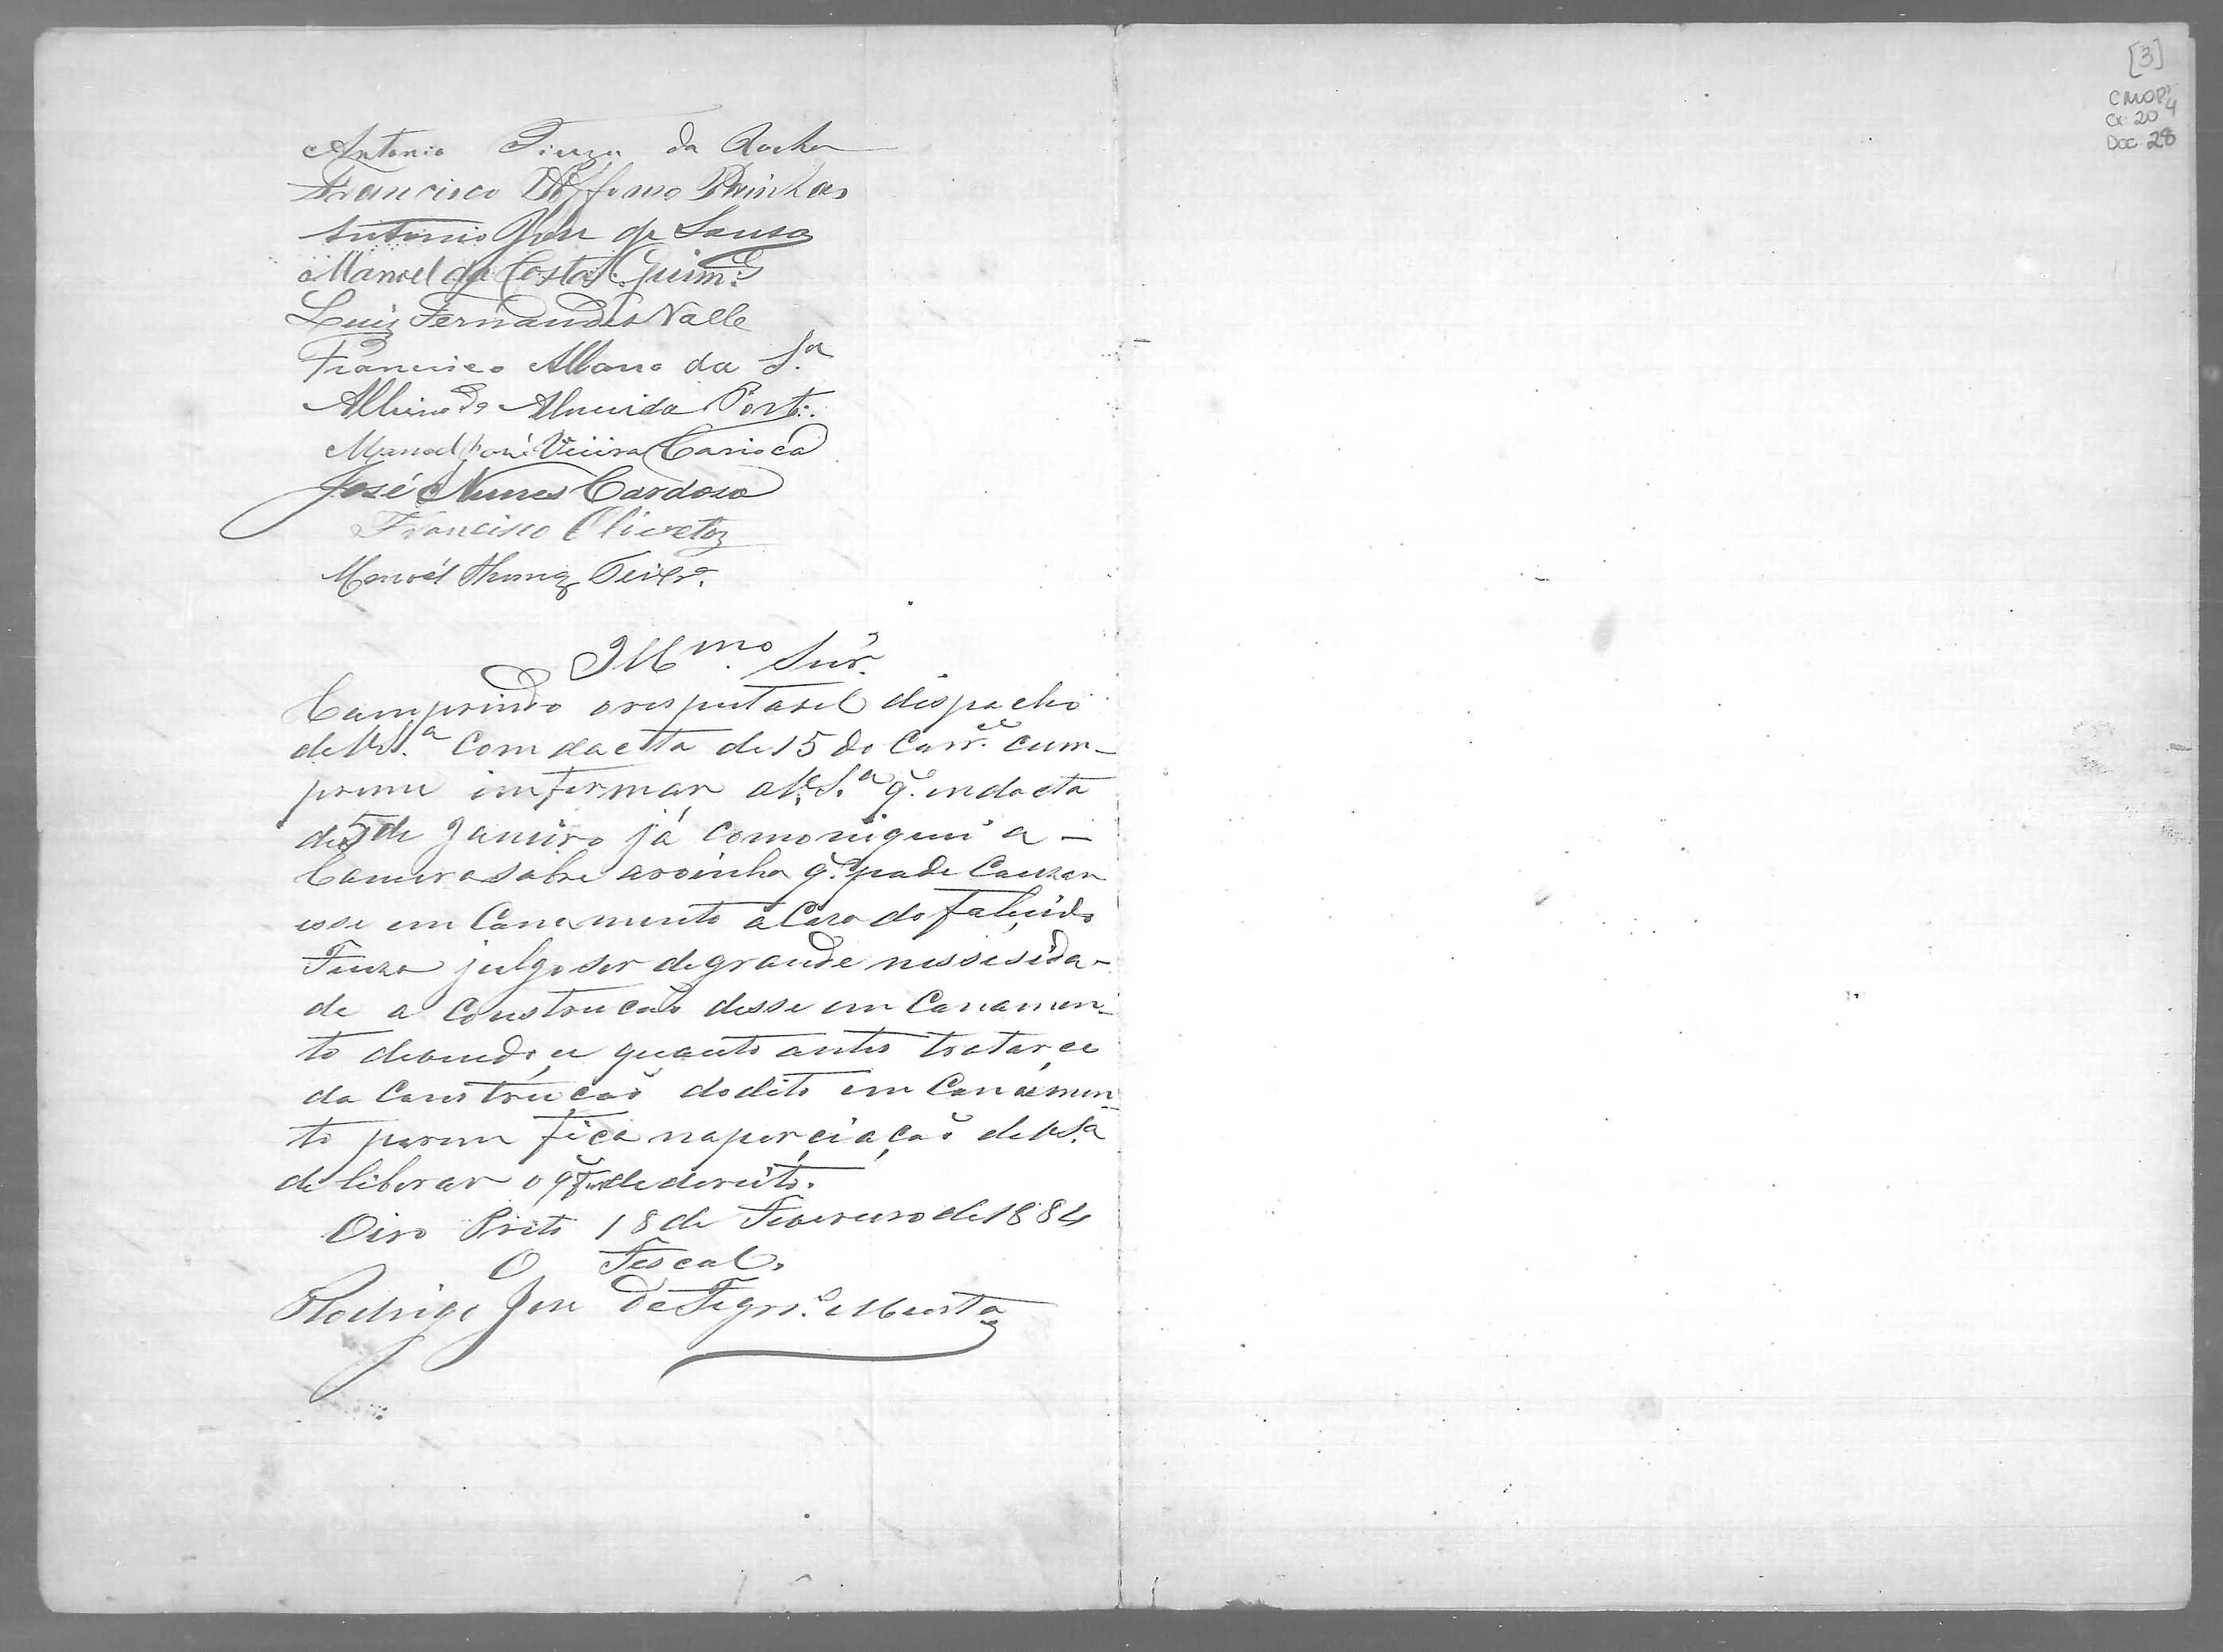 Antonio Fiuza da Rocha
Francisco Affonso Painhas
Antonio José de Sousa
Manoel da Costa Guim.es
Luiz Fernandes Valle
Francisco Albano da S.a
Albino de Almeida Port.
Manoel José Vieira Carioca
José Nunes Cardoso
Francisco Oliveto
Manoel Teixr.a
Illmo. Snr.
Comprindo o respeitavel dispacho
de V.S.a com dacta de 15 do Corr.e cum-
preme imformar a V.S.a q. em dacta
de 5 de Janeiro já comoniquei a
Camera sobre a roinha q. pode Cauzar
esse em Canamento a Caza do falicido
Fiuza julgo ser de grande nessesida-
de a Construcão desse em Canamen-
to devendo, ce quanto antes tratar, ce
da Construcão do dito em Canamen-
to porem fica na perciação de V.S.a
de liberar o q. for de dereito.
Oiro Preto 18 de Fevereiro de 1884
O Fescal.
Rodrigo José de Figrd.o Murta
[3]
CMOP
Cx 20 4
Doc 28